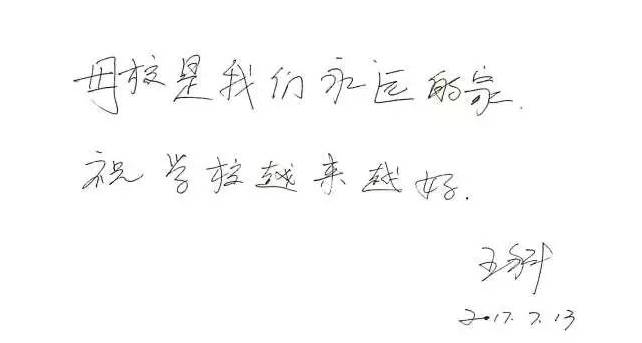 母校是我们永远的家.
祝学校越来越好.
王科
2017.7.13